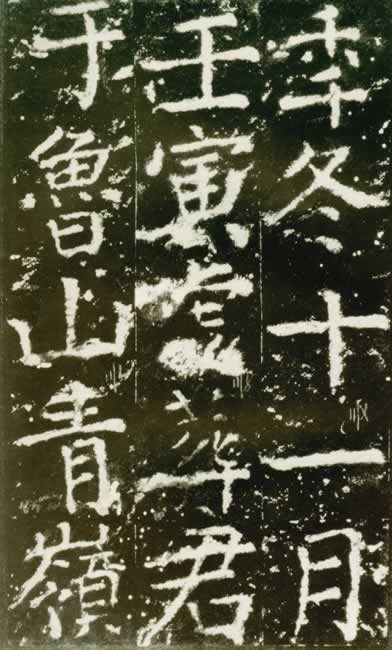 秊冬十一月
壬寅虔葬君
于魯山青嶺